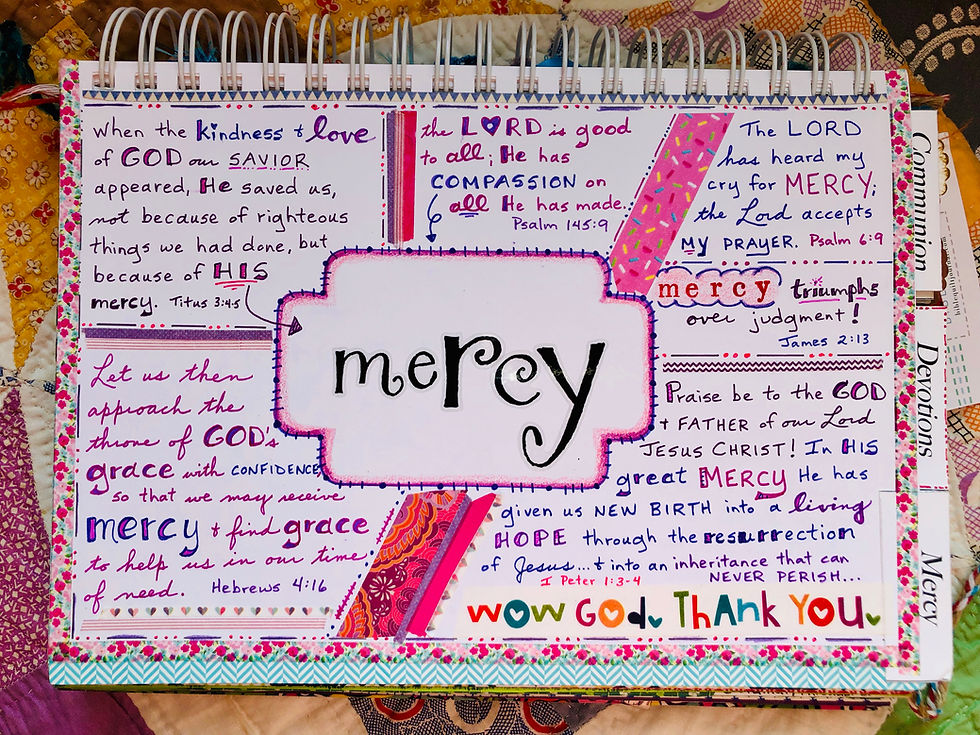 when the kindness & love
of GOD our SAVIOR
appeared, He saved us,
not because of righteous
things we had done, but
because of HIS
mercy. Titus 3:4-5
the LORD is good
to all; He has
COMPASSION on
all He has made.
Psalm 145:9
The LORD
has heard my
cry for MERCY;
the Lord accepts
my PRAYER. Psalm 6:9
mercy triumphs
over judgment!
James 2:13
mercy
Let us then
approach the
throne of GOD's
grace with CONFIDENCE
so that we may receive
mercy & find grace
to help us in our time
of need. Hebrews 4:16
Praise be to the GOD
& FATHER of our Lord
JESUS CHRIST! In HIS
great MERCY He has
given us NEW BIRTH into a living
HOPE through the resurrection
of Jesus...& into an inheritance that can
NEVER PERISH...
I Peter 1:3-4
WOW GOD. THANK YOU.
Communion
Devotions
Mercy